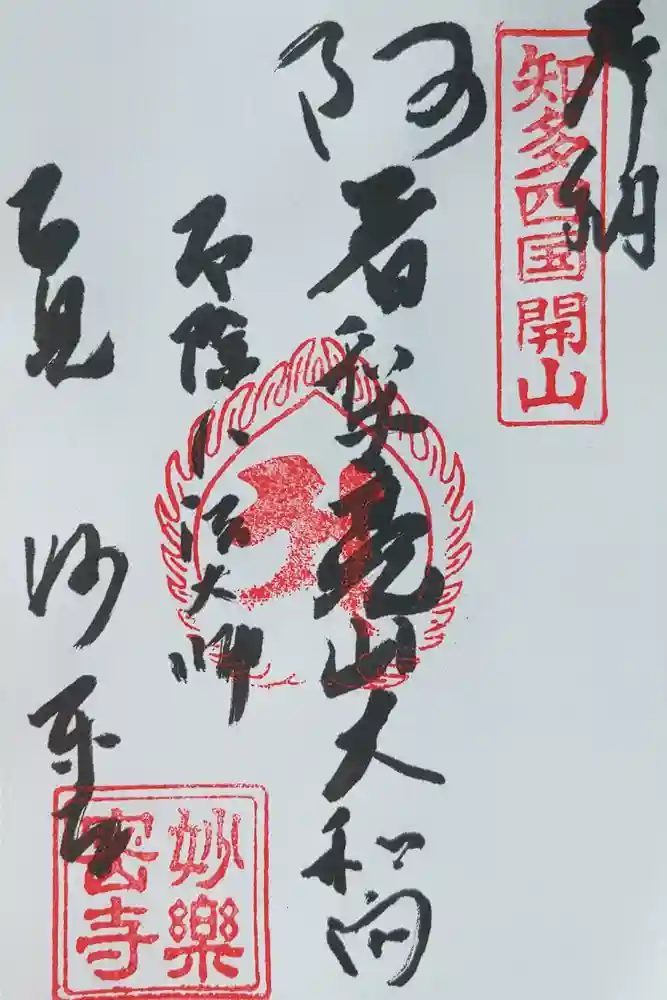 奉納
知多四国開山
阿闍梨亮山大和尚
厄除弘法大師
古見 妙楽寺
妙樂
密寺